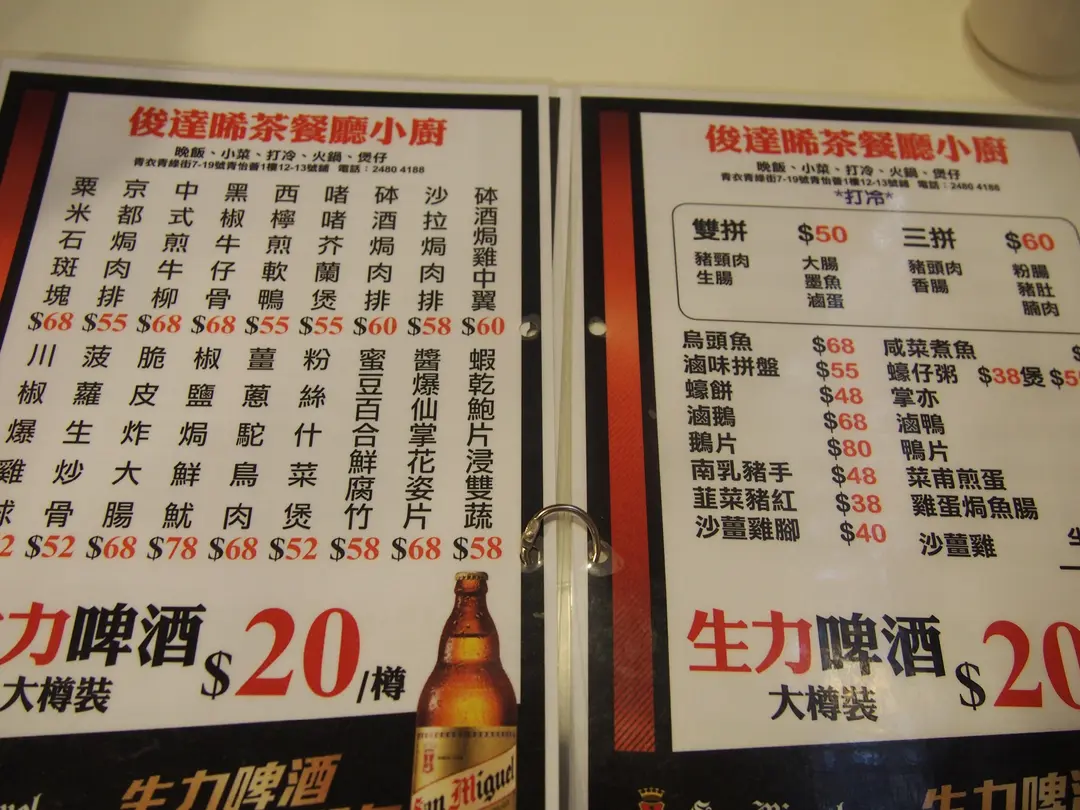 俊達晞茶餐廳小廚
晚飯、小菜、打冷、火鍋、煲仔
青衣青綠街7-19號青怡薈1樓12-13號舖 電話：2480 4188
砵酒焗雞中翼 $60
沙拉焗肉排 $58
砵酒焗肉排 $60
啫啫芥蘭煲 $55
西檸煎軟鴨 $55
黑椒牛仔骨 $68
中式煎牛柳 $68
京都焗肉排 $55
粟米石斑塊 $68
蝦乾鮑片浸雙蔬 $58
醬爆仙掌花姿片 $68
蜜豆百合鮮腐竹 $58
粉絲什菜煲 $52
薑蔥駝鳥肉 $68
椒鹽焗鮮魷 $78
脆皮炸大腸 $68
菠蘿生炒骨 $52
川椒爆雞球
力啤酒 $20/樽
大樽裝
生力啤酒
San Miguel
俊達晞茶餐廳小廚
晚飯、小菜、打冷、火鍋、煲仔
青衣青綠街7-19號青怡薈1樓12-13號舖 電話：2480 4188
*打冷*
雙拼 $50 三拼 $60
豬頸肉 大腸 豬頭肉 粉腸
生腸 墨魚 香腸 豬肚
滷蛋 腩肉
烏頭魚 $68 咸菜煮魚
滷味拼盤 $55 蠔仔粥 $38煲
蠔餅 $48 掌亦
滷鵝 $68 滷鴨
鵝片 $80 鴨片
南乳豬手 $48 菜甫煎蛋
韮菜豬紅 $38 雞蛋焗魚腸
沙薑雞腳 $40 沙薑雞
生力啤酒 $20
大樽裝
San Miguel
生力啤酒